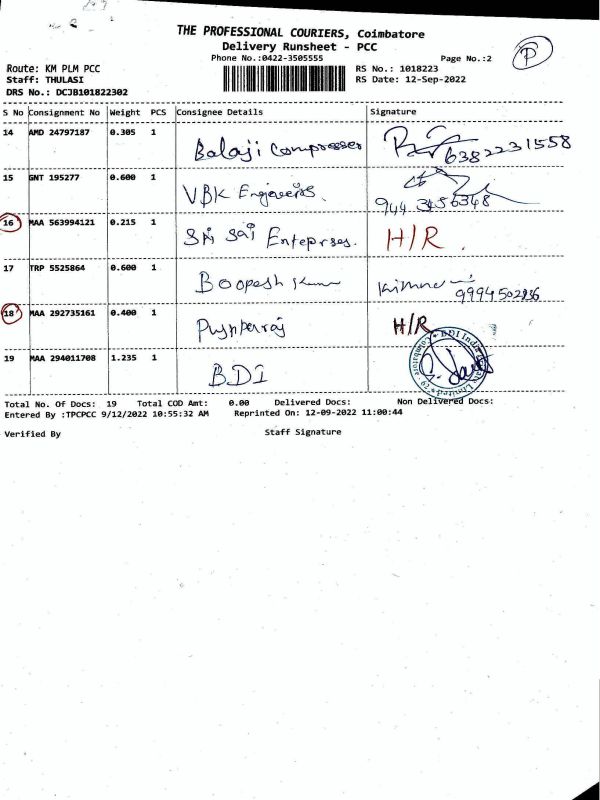 THE PROFESSIONAL COURIERS, Coimbatore
Delivery Runsheet - PCC
Phone No.:0422-3505555 Page No.:2 P
Route: KM PLM PCC RS No.: 1018223
Staff: THULASI RS Date: 12-Sep-2022
DRS No.: DCJB101822302
S No Consignment No Weight PCS Consignee Details Signature
14 AMD 24797187 0.305 1 Balaji Compresser 6382231558
15 GNT 195277 0.600 1 VBK Engineers. 944 3456348
16 MAA 563994121 0.215 1 Sri Sai Enteprses. H/R.
17 TRP 5525864 0.600 1 Boopesh Kumar 9994502936
18 MAA 292735161 0.400 1 H/R
19 MAA 294011708 1.235 1 BDI
Total No. Of Docs: 19 Total COD Amt: 0.00 Delivered Docs: Non Delivered Docs:
Entered By :TPCPCC 9/12/2022 10:55:32 AM Reprinted On: 12-09-2022 11:00:44
Verified By Staff Signature